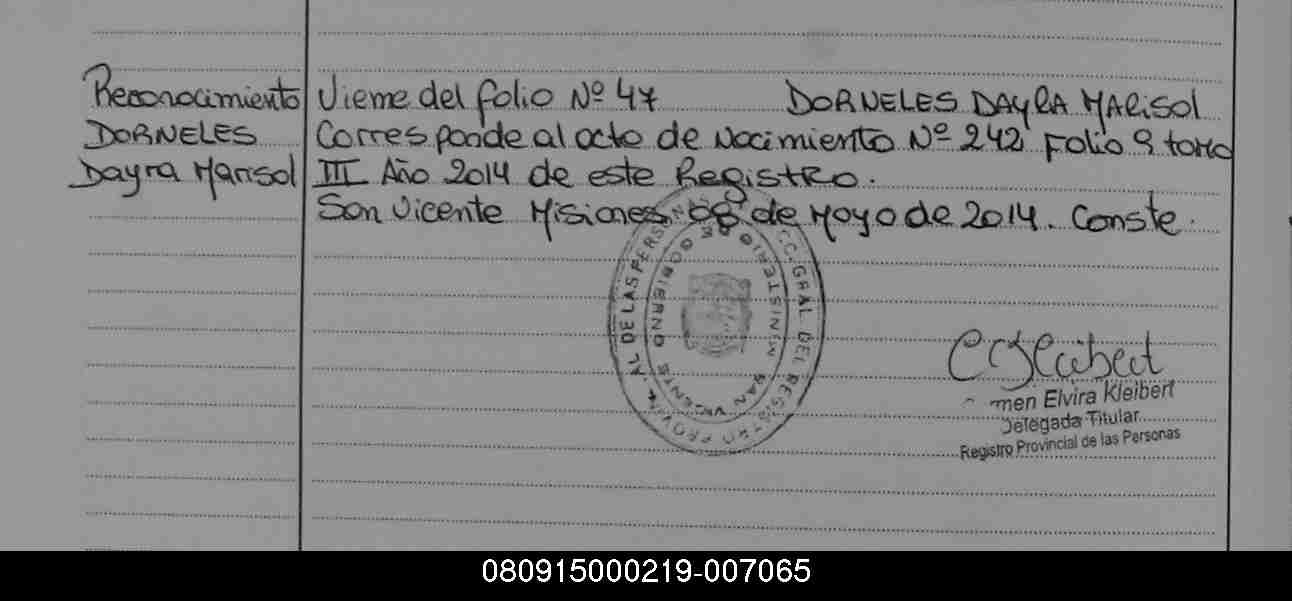 Reconocimiento
DORNELES
Dayra Marisol
Vieme del folio Nº 47 DORNELES DAYRA MARISOL
Corresponde al acto de Nacimiento Nº 242 Folio 9 tomo
III Año 2014 de este Registro.
San Vicente Misiones 08 de Mayo de 2014. Conste.
CC. GRAL DEL REGISTRO PROVIN AL DE LAS PERSO
MINISTERIO DE GOBIERNO
SAN VICENTE
men Elvira Kleibert
Delegada Titular
Registro Provincial de las Personas
080915000219-007065